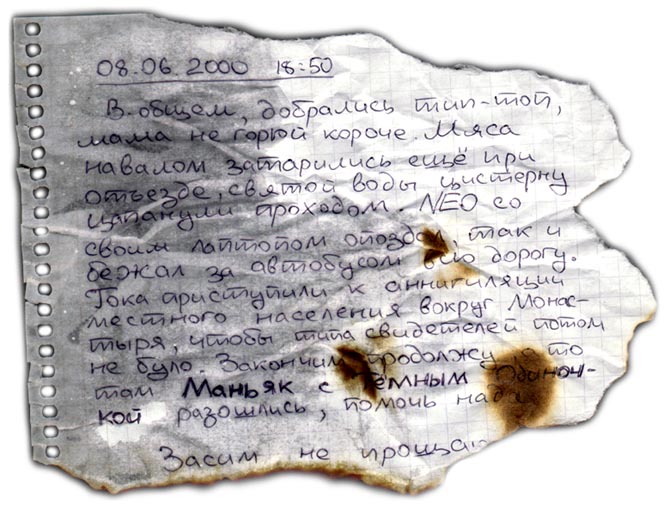 08.06.2000 18:50
В общем, добрались тип-топ,
мама не горюй короче. Мяса
навалом затарились ещё при
отъезде, святой воды цистерну
цапанули проходом. NEO со
своим лаптопом опоздал, так и
бежал за автобусом всю дорогу.
Тока приступили к аннигиляции
местного населения вокруг Монас-
тыря, чтобы типа свидетелей потом
не було. Закончим продолжу, а то
там Маньяк с Тёмным Одиноч-
кой разошлись, помочь
Засим не